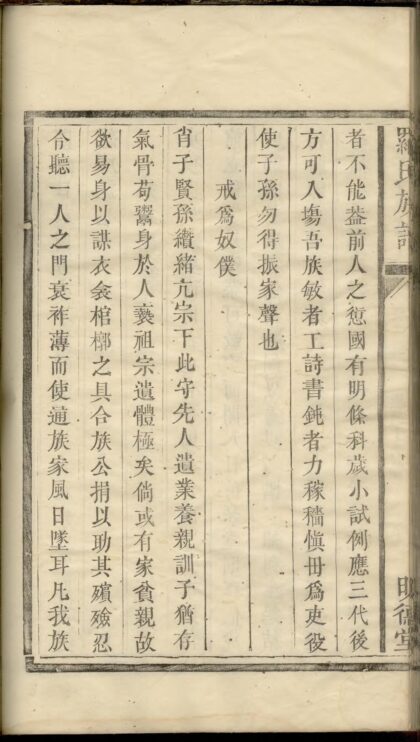 羅氏族譜
明德堂
者不能葢前人之愆國有明條科歲小試例應三代後
方可入塲吾族敏者工詩書鈍者力稼穡愼毋爲吏役
使子孫勿得振家聲也
戒爲奴僕
肖子賢孫纘緒亢宗下此守先人遺業養親訓子猶存
氣骨苟鬻身於人褻祖宗遺體極矣倘或有家貧親故
欲易身以謀衣衾棺槨之具合族公捐以助其殯殮忍
令聽一人之門衰祚薄而使通族家風日墜耳凡我族